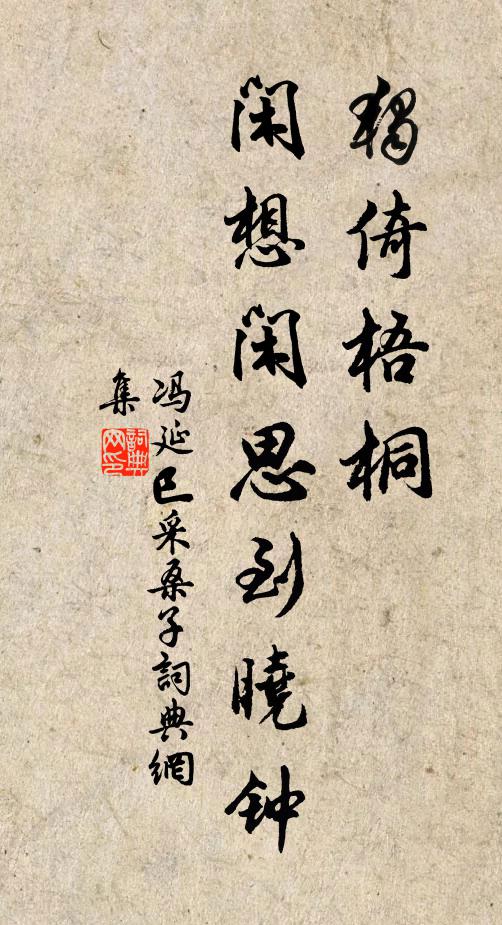 獨倚梧桐
闲想闲思到曉钟
冯延巳采桑子詞典網
集
詞典网印